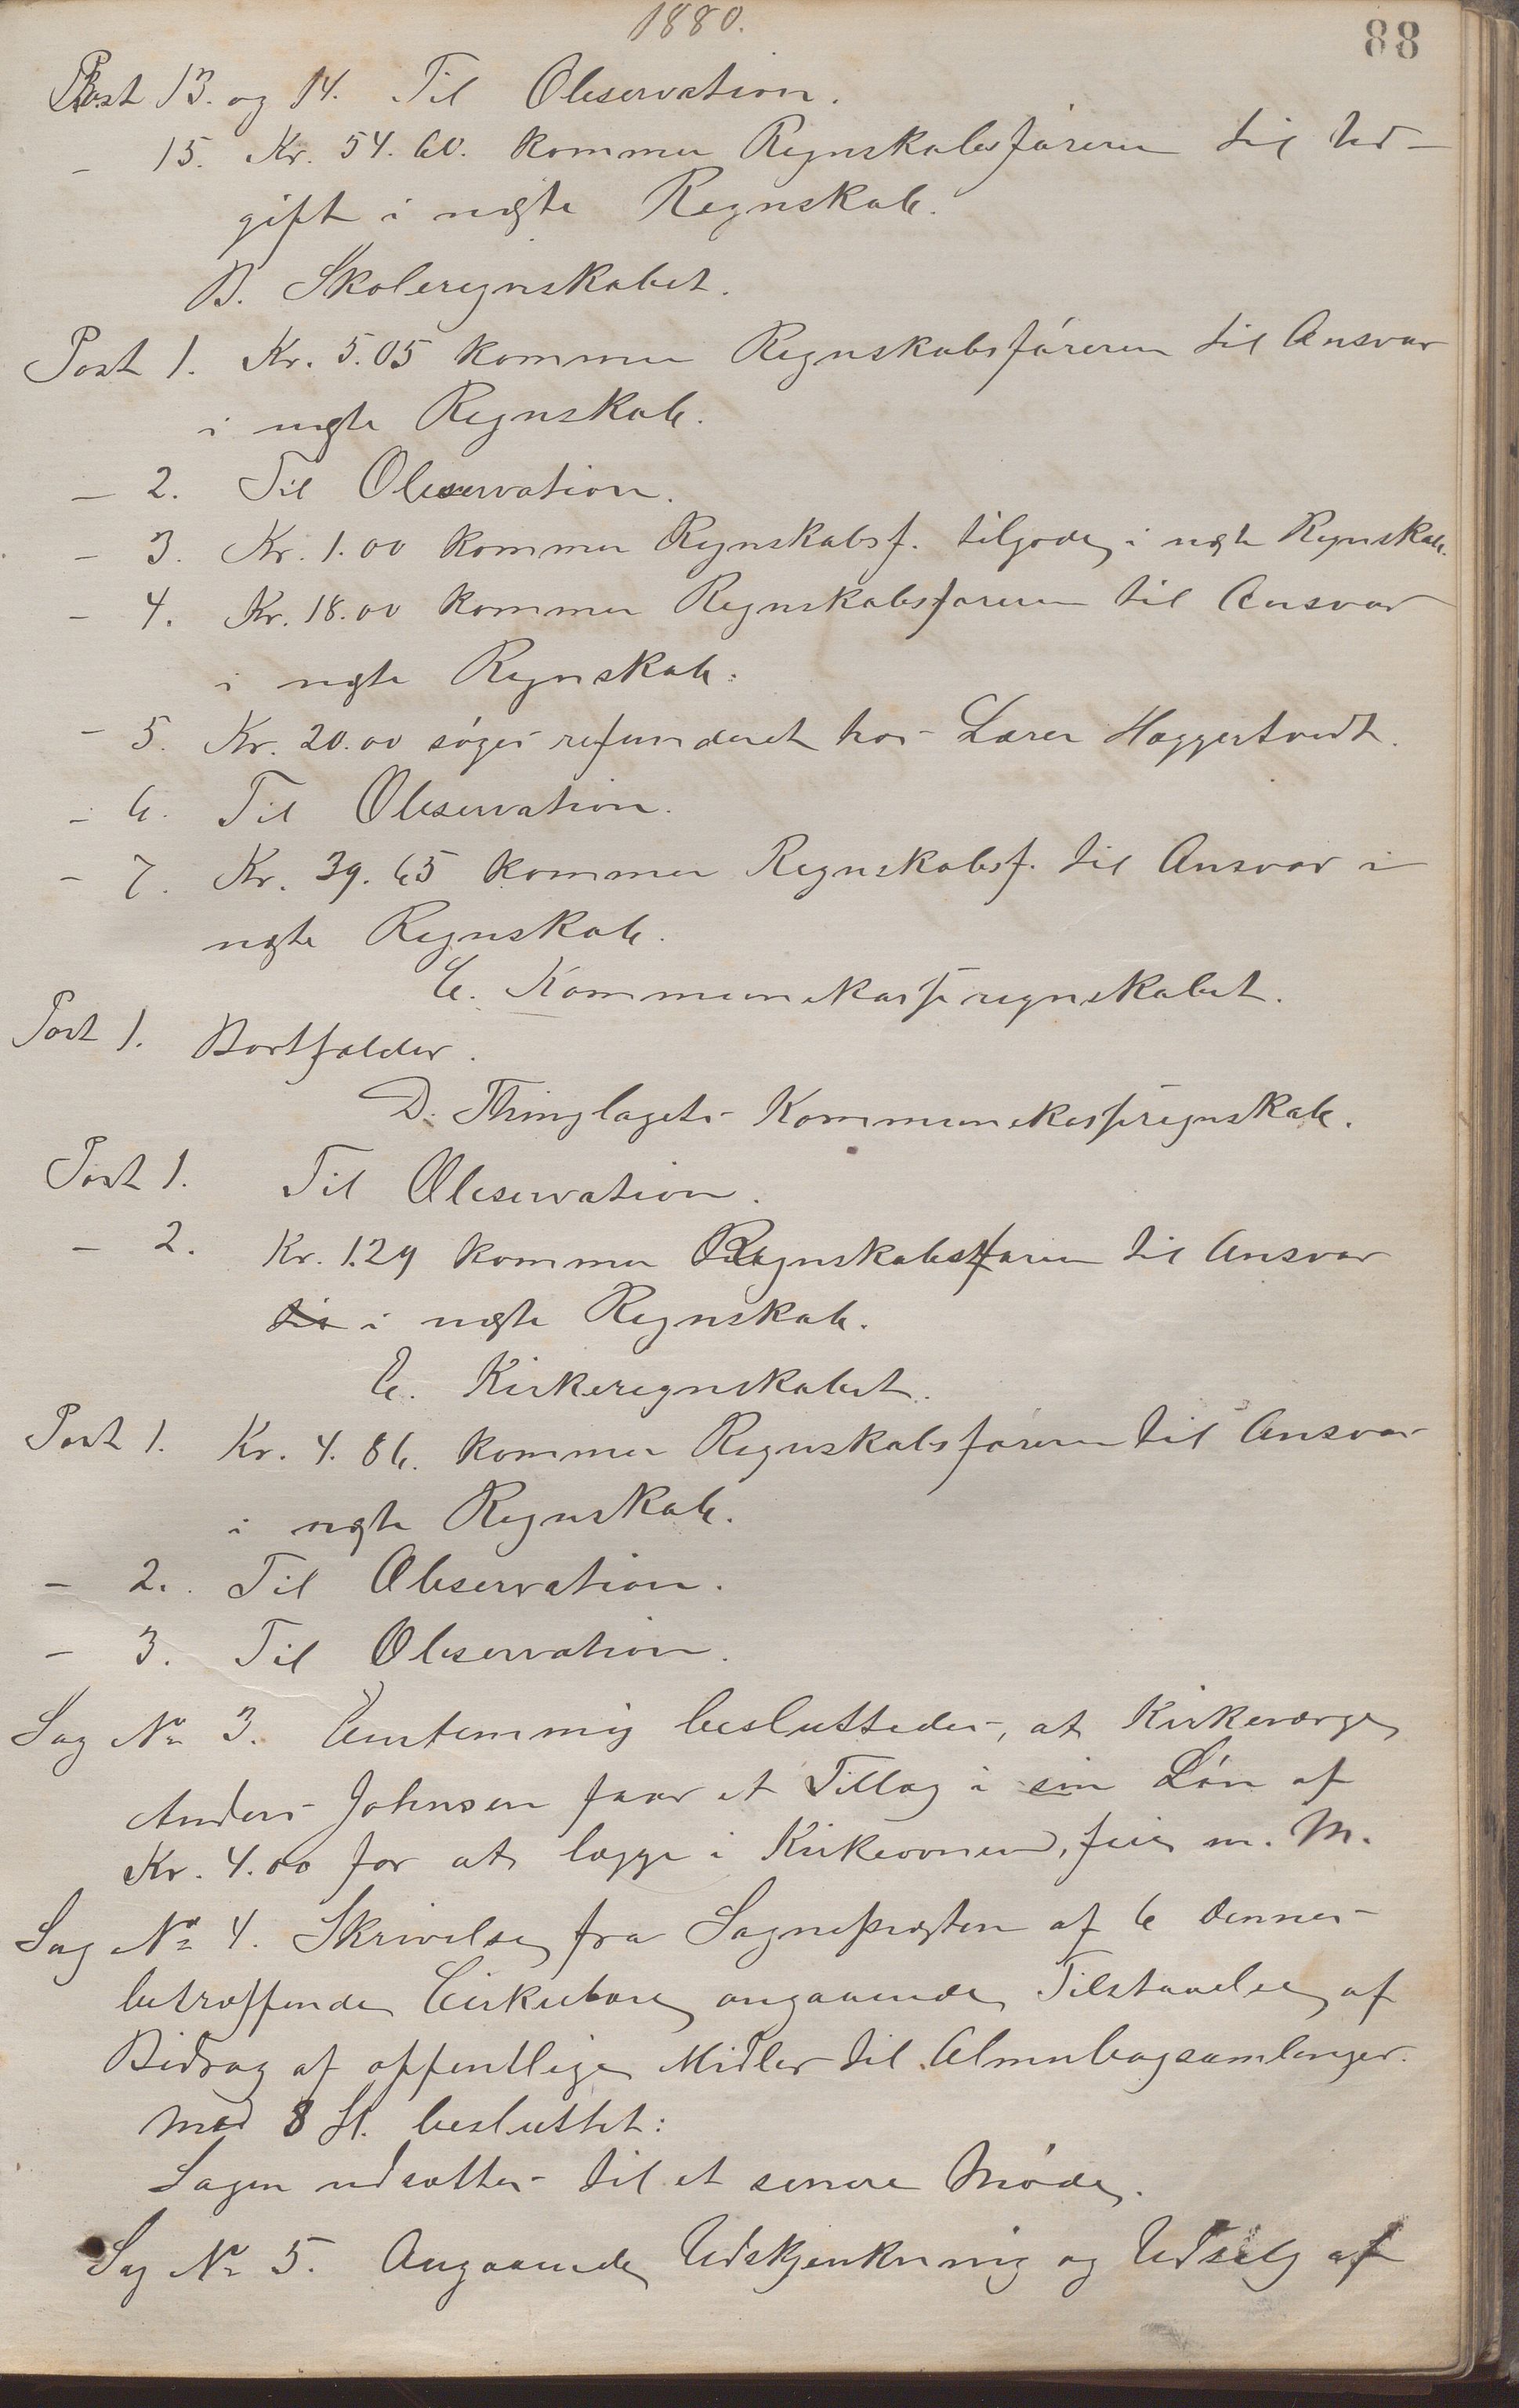 1880.
88
Post 13. og 14. Til Observation.
- 15. Kr. 54.60. kommer Regnskabsføreren til Ud-
gift i næste Regnskab.
B. Skoleregnskabet.
Post 1. Kr. 5.05 kommer Regnskabsføreren til Ansvar
i næste Regnskab.
- 2. Til Observation.
- 3. Kr. 1.00 kommer Regnskabsf. tilgode i næste Regnskab.
- 4. Kr. 18.00 kommer Regnskabsføreren til Ansvar
i næste Regnskab.
- 5. Kr. 20.00 søges refunderet hos Lærer Haggertvedt.
- 6. Til Observation.
- 7. Kr. 39.65 kommer Regnskabsf. til Ansvar i
næste Regnskab.
C. Kommunekasseregnskabet.
Post 1. Bortfalder.
D. Thinglagets Kommunekasseregnskab.
Post 1. Til Observation.
- 2. Kr. 1.29 kommer Regnskabsføreren til Ansvar
til i næste Regnskab.
E. Kirkeregnskabet.
Post 1. Kr. 4.86. kommer Regnskabsføreren til Ansvar
i næste Regnskab.
- 2. Til Observation.
- 3. Til Observation.
Sag No 3. Eenstemmig besluttedes, at Kirkeværge
Anders Johnsen faar et Tillæg i sin Løn af
Kr. 4.00 for at lægge i Kirkeovnen, feie m. M.
Sag No 4. Skrivelse fra Sognepræsten af 6 dennes
betræffende Cirkulære angaaende Tilstaaelse af
Bidrag af offentlige Midler til Almubogsamlinger.
Med 8 St. besluttet:
Sagen udsættes til et senere Møde.
Sag No 5. Angaaende Udskjenkning og Udsalg af